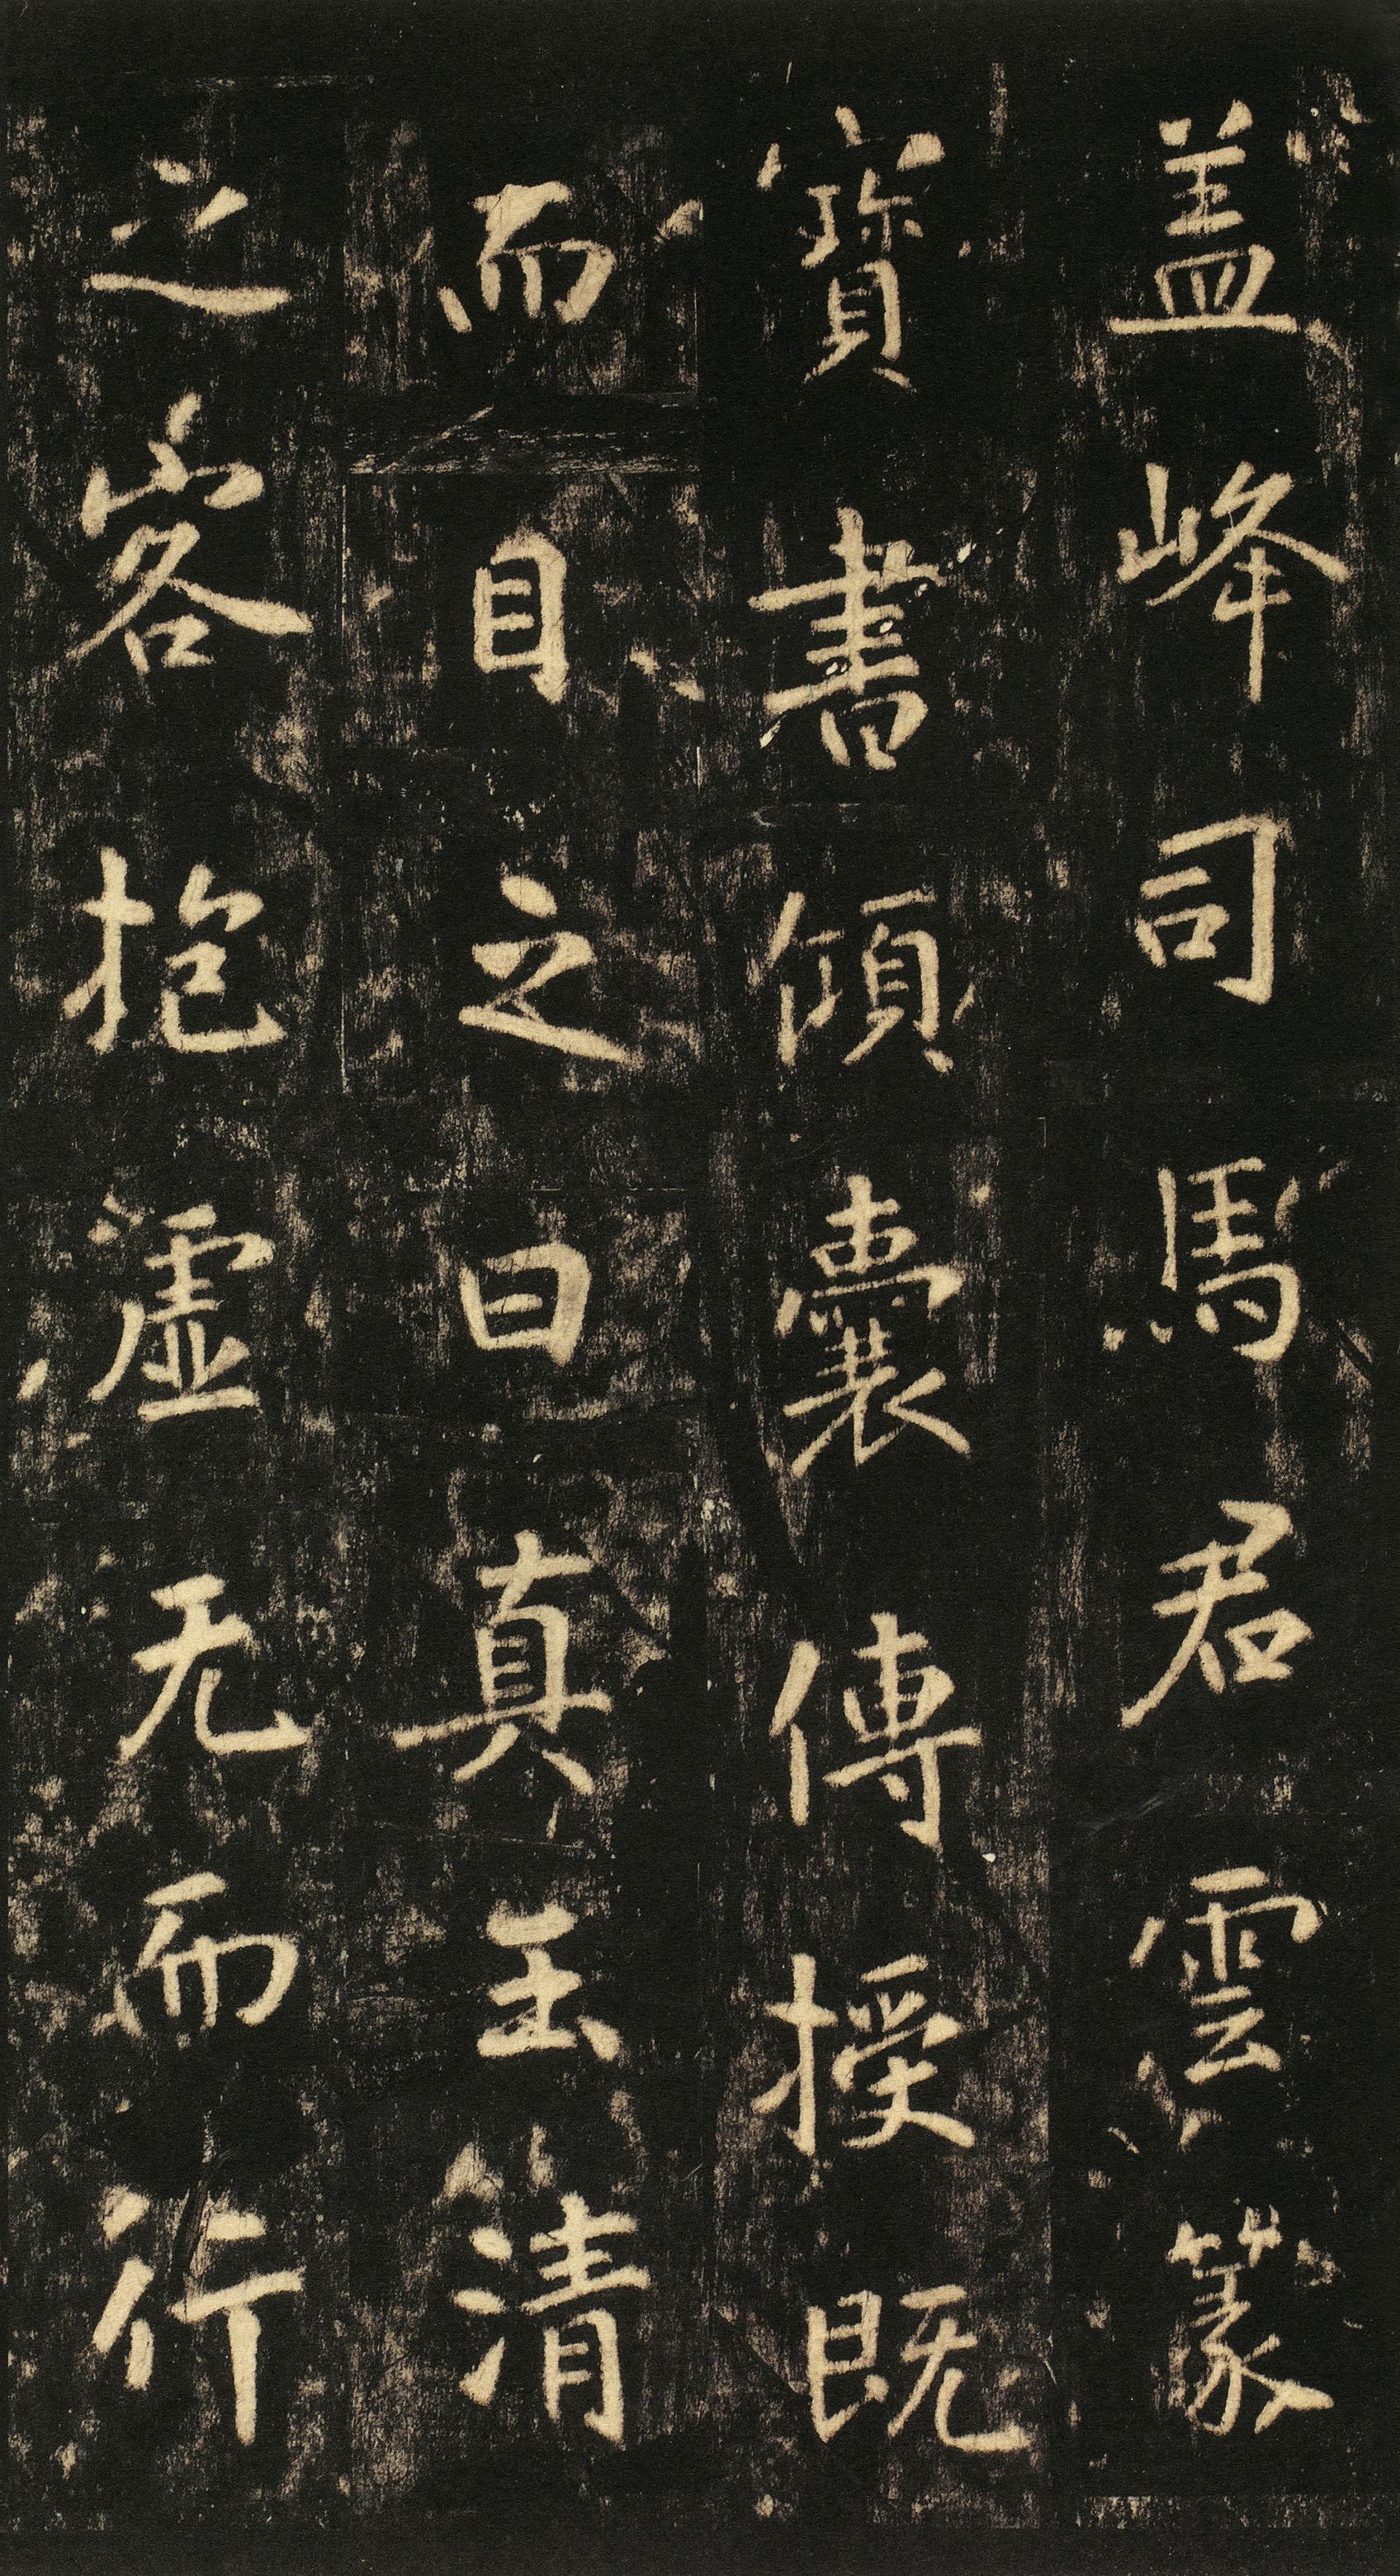 盖峰司馬君雲篆
寶書傾囊傳授既
而目之曰真王清
之客抱虛无而行